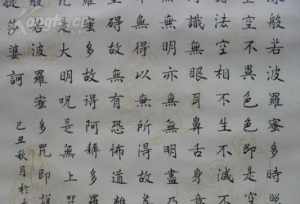 般若波羅蜜多時照
空不異色色即是空
法空相不生不滅
識無眼耳鼻舌身意
無無明亦無無明盡
無得以無所得故
碍故無有恐怖遠離
蜜多故得阿耨多羅
是大明咒是無上
若波羅蜜多咒即說
婆訶
己丑秋月於